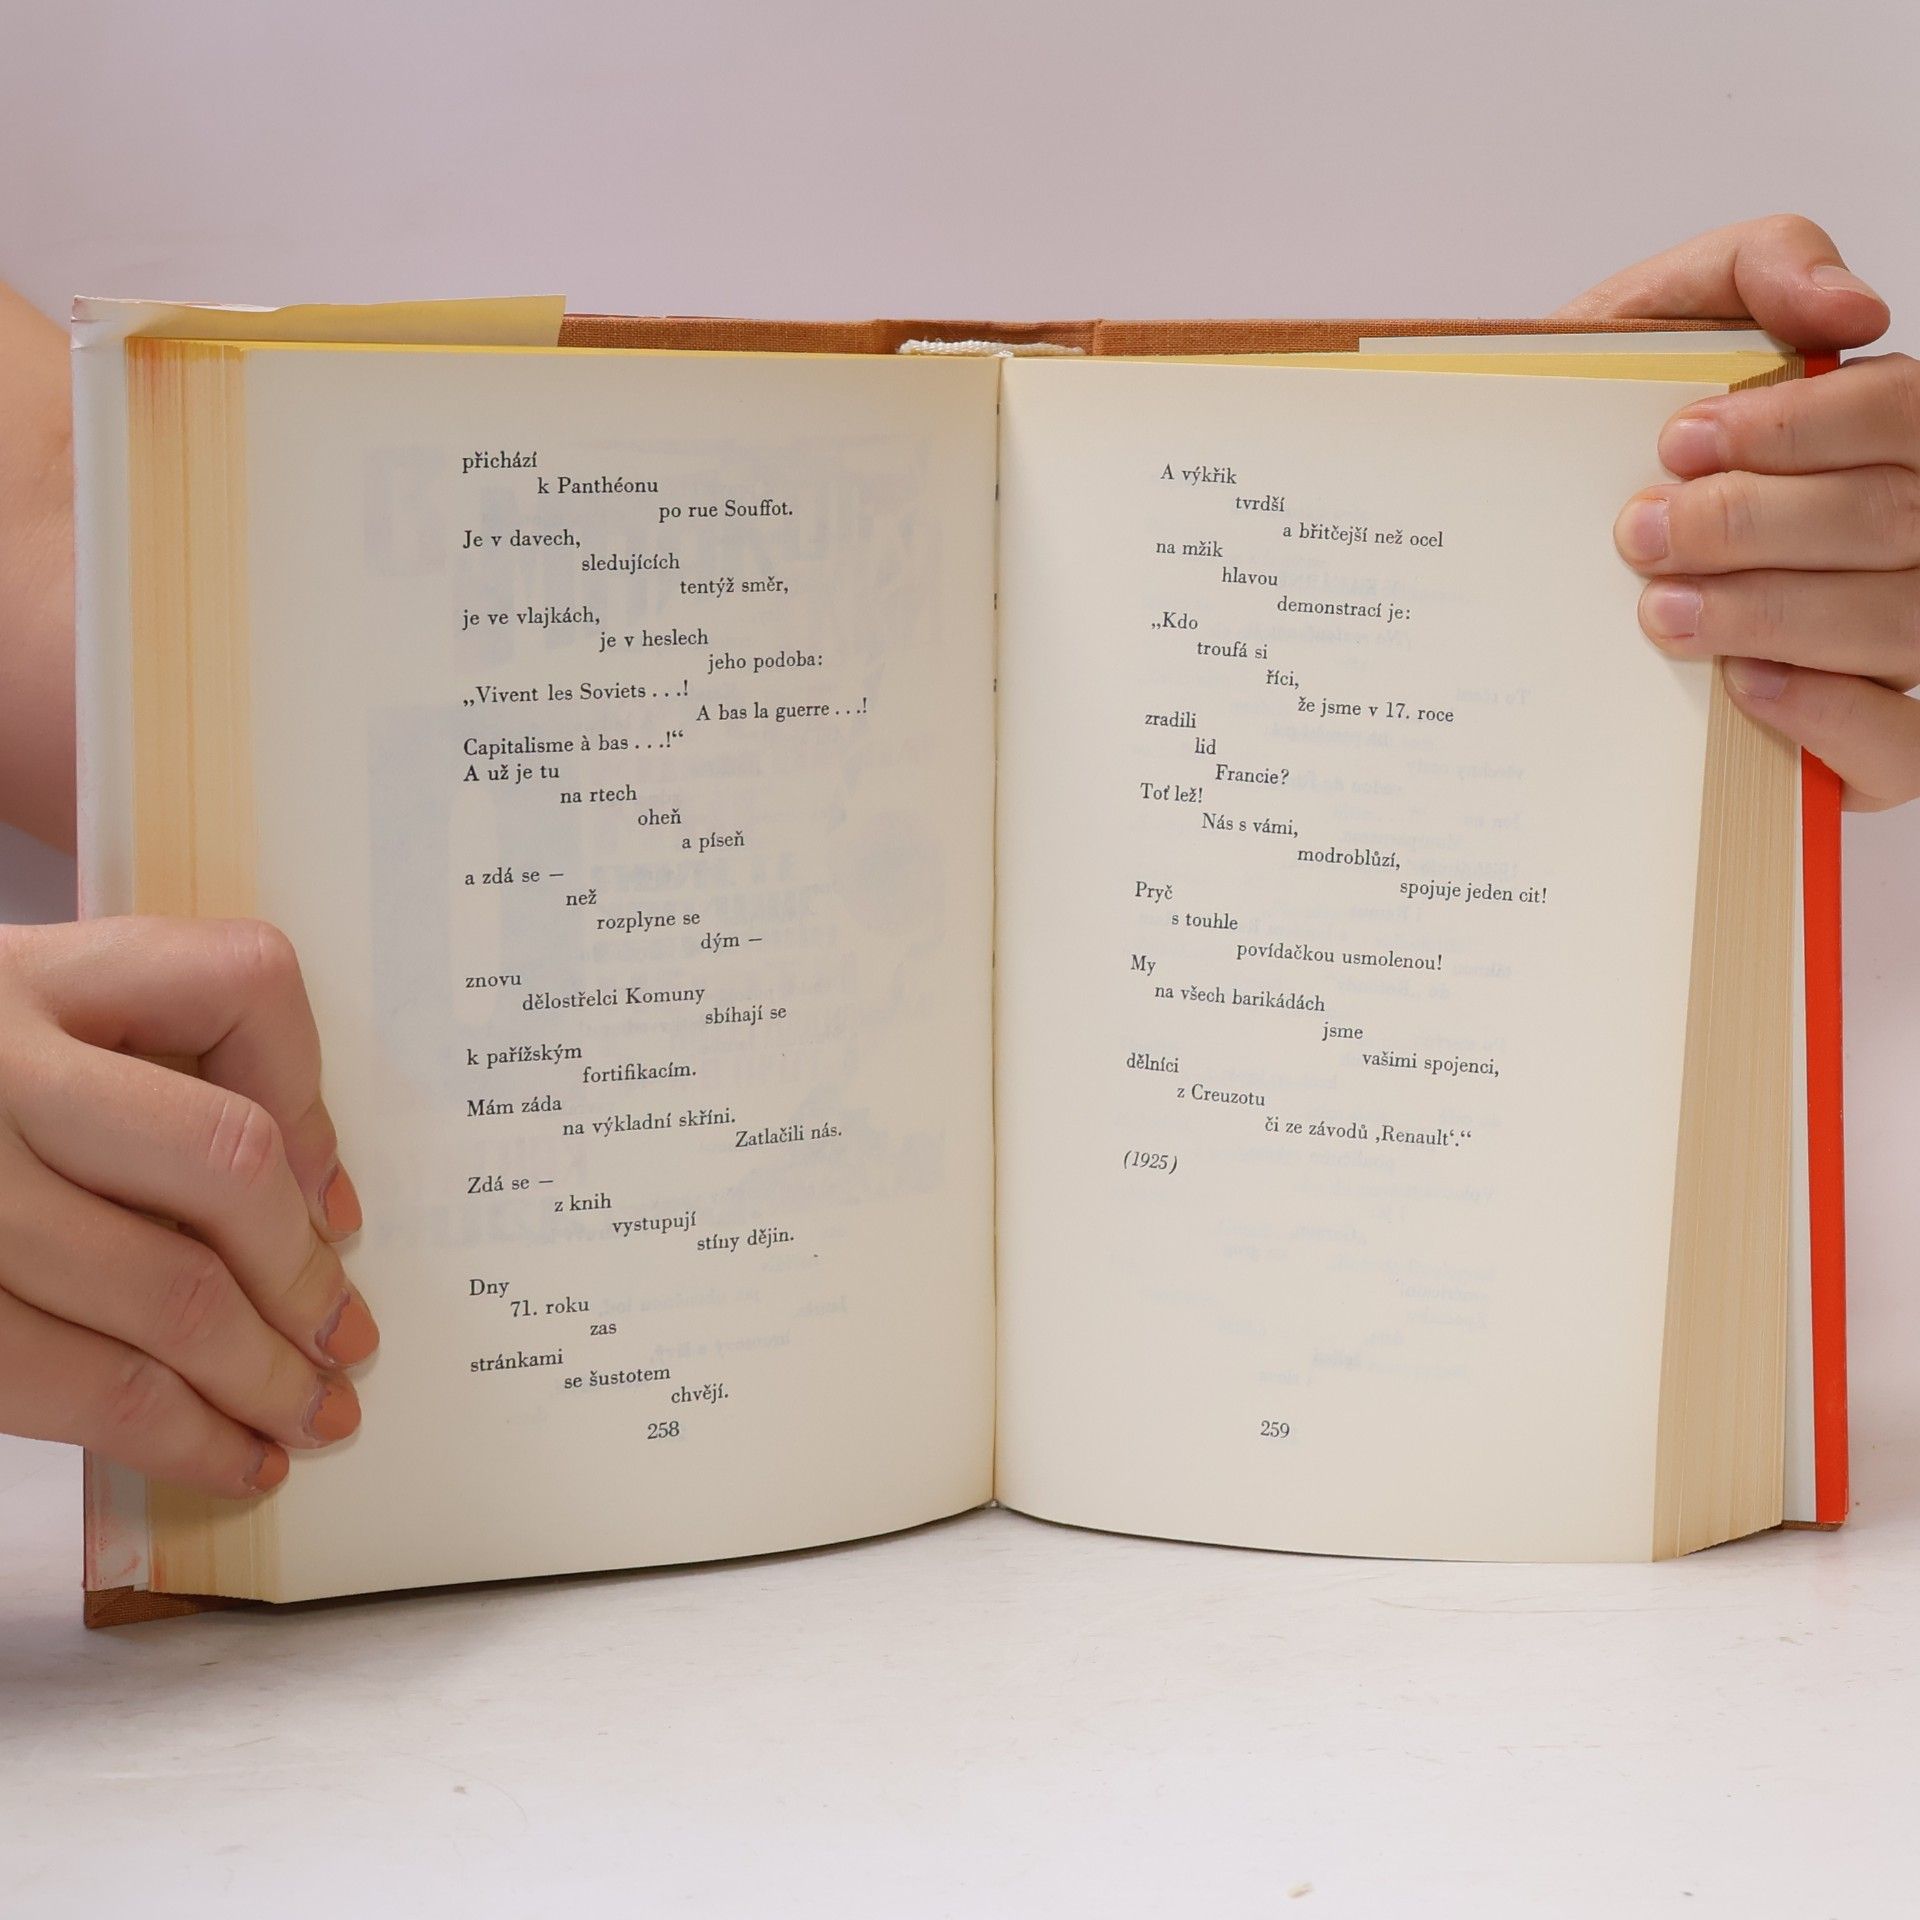 přichází
k Panthéonu
po rue Souffot.
Je v davech,
sledujících
tentýž směr,
je ve vlajkách,
je v heslech
jeho podoba:
„Vivent les Soviets . . .!
A bas la guerre . . .!
Capitalisme à bas . . .!“
A už je tu
na rtech
oheň
a píseň
a zdá se —
než
rozplyne se
dým —
znovu
dělostřelci Komuny
sbíhají se
k pařížským
fortifikacím.
Mám záda
na výkladní skříni.
Zatlačili nás.
Zdá se —
z knih
vystupují
stíny dějin.
Dny
71. roku
zas
stránkami
se šustotem
chvějí.
258
A výkřik
tvrdší
a břitčejší než ocel
na mžik
hlavou
demonstrací je:
„Kdo
troufá si
říci,
že jsme v 17. roce
zradili
lid
Francie?
Toť lež!
Nás s vámi,
modroblůzí,
spojuje jeden cit!
Pryč
s touhle
povídačkou usmolenou!
My
na všech barikádách
jsme
vašimi spojenci,
dělníci
z Creuzotu
či ze závodů ‚Renault‘.“
(1925)
259